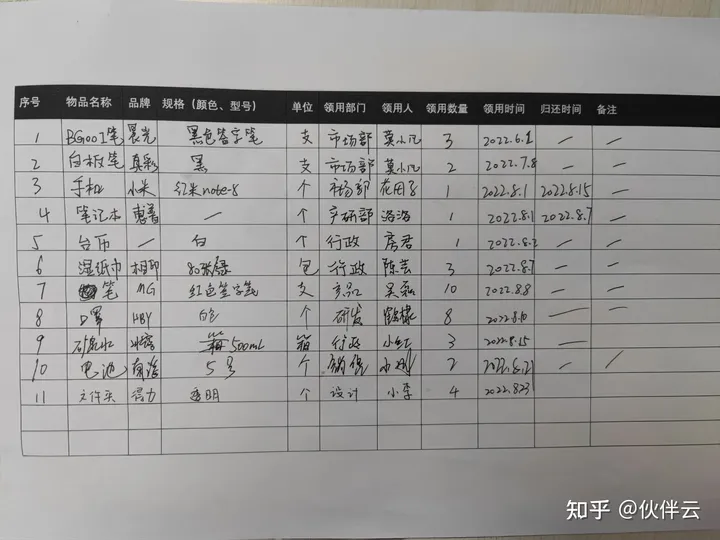 序号 物品名称 品牌 规格（颜色、型号） 单位 领用部门 领用人 领用数量 领用时间 归还时间 备注
1 BG001笔 晨光 黑色签字笔 支 市场部 莫小凡 3 2022.6.1 — —
2 白板笔 真彩 黑 支 市场部 莫小凡 2 2022.7.8 — —
3 手机 小米 红米note-8 个 市场部 花田子 1 2022.8.1 2022.8.15 —
4 笔记本 惠普 — 个 产研部 洛洛 1 2022.8.1 2022.8.7 —
5 台历 — 白 个 行政 房君 1 2022.8.2 — —
6 湿纸巾 相印 80张 包 行政 陈芸 3 2022.8.7 — —
7 笔 MG 红色签字笔 支 产品 吴磊 10 2022.8.8 — —
8 口罩 HBY 白色 个 研发 8 2022.8.10 — —
9 矿泉水 冰露 500mL 箱 行政 小红 3 2022.8.15 —
10 电池 南孚 5号 个 销售 小刚 2 2022.8.21 — /
11 文件夹 得力 透明 个 设计 小李 4 2022.8.23
知乎 @伙伴云